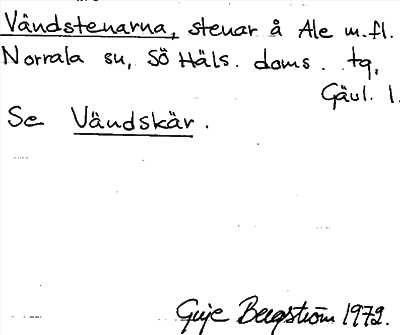 Vändstenarna, stenar å Ale m.fl.
Norrala sn, SÖ Häls. doms. tg,
Gävl. l.
Se Vändskär.
Bergström 1972.